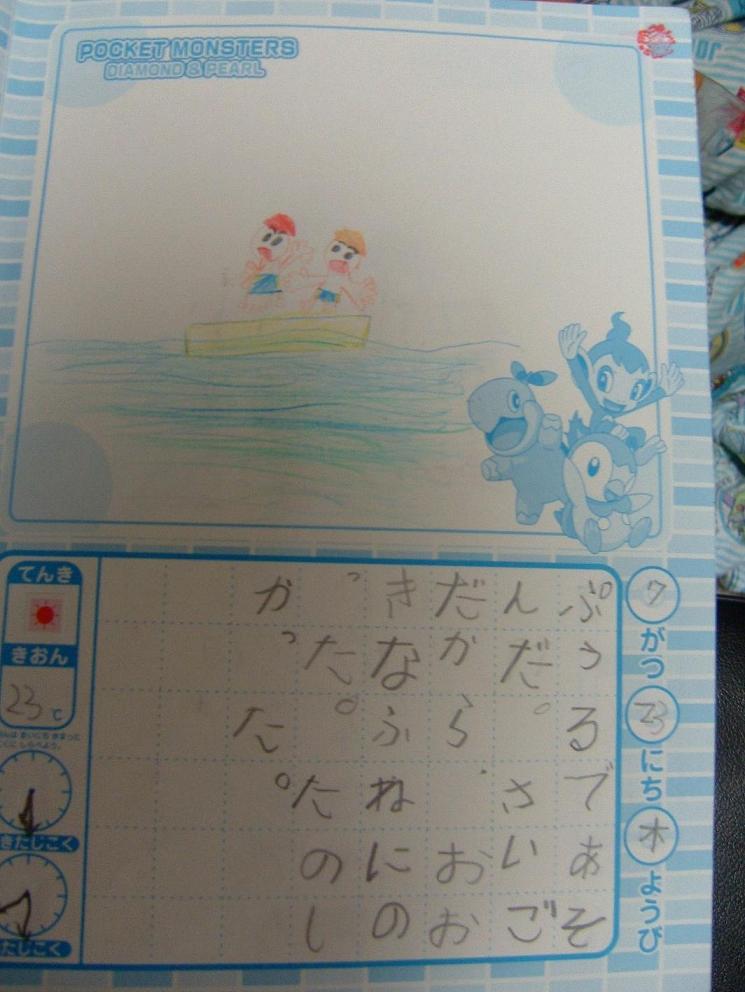 POCKET MONSTERS
DIAMOND & PEARL
7がつ23にち木ようび
ぷうるであそ
んだ。さいご
だから、おお
きなふねにの
った。たのし
かった。
てんき
きおん
23℃
きたじこく
たじこく